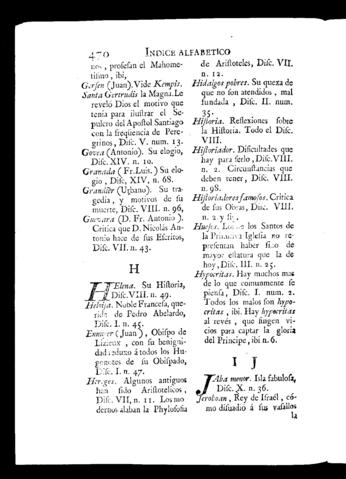 470 INDICE ALFABETICO
nos, profesan el Mahome-
tismo, ibi,
Gersen (Juan). Vide Kempis.
Santa Gertrudis la Magna. Le
reveló Dios el motivo que
tenia para ilustrar el Se-
pulcro del Apostol Santiago
con la freqüencia de Pere-
grinos, Disc. V. num. 13.
Govea (Antonio). Su elogio,
Disc. XIV. n. 10.
Granada (Fr. Luis.) Su elo-
gio, Disc. XIV, n. 68.
Grandier (Urbano). Su tra-
gedia, y motivos de su
muerte, Disc. VIII. n. 96,
Guevara (D. Fr. Antonio).
Critica que D. Nicolás An-
tonio hace de sus Escritos,
Disc. VII. n. 43.
H
HElena. Su Historia,
Disc. VIII. n. 49.
Heloisa. Noble Francesa, que-
rida de Pedro Abelardo,
Disc. I. n. 45.
(Juan), Obispo de
Lizieux, con su benigni-
dad reduxo á todos los Hu-
gonotes de su Obispado,
Disc. I. n. 47.
Hereges. Algunos antiguos
han sido Aristotelicos,
Disc. VII, n. 11. Los mo-
dernos alaban la Phylosofia
de Aristoteles, Disc. VII.
n. 12.
Hidalgos pobres. Su quexa de
que no son atendidos, mal
fundada, Disc. II. num.
35.
Historia. Reflexiones sobre
la Historia. Todo el Disc.
VIII.
Historiador. Dificultades que
hay para serlo, Disc. VIII.
n. 2. Circunstancias que
deben tener, Disc. VIII.
n. 98.
Historiadores famosos. Critica
de sus Obras, Disc. VIII.
n. 2 y
Huesos. Los de los Santos de
la Primitiva Iglesia no re-
presentan haber sido de
mayor estatura que la de
hoy, Disc. III. n. 25.
Hypocritas. Hay muchos mas
de lo que comunmente se
piensa, Disc. I. num. 2.
Todos los malos son hypo-
critas, ibi. Hay hypocritas
al revés, que fingen vi-
cios para captar la gloria
del Principe, ibi n. 6.
I J
JAba menor. Isla fabulosa,
Disc. X. n. 36.
Jeroboan, Rey de Israël, có-
mo disuadió á sus vasallos
la